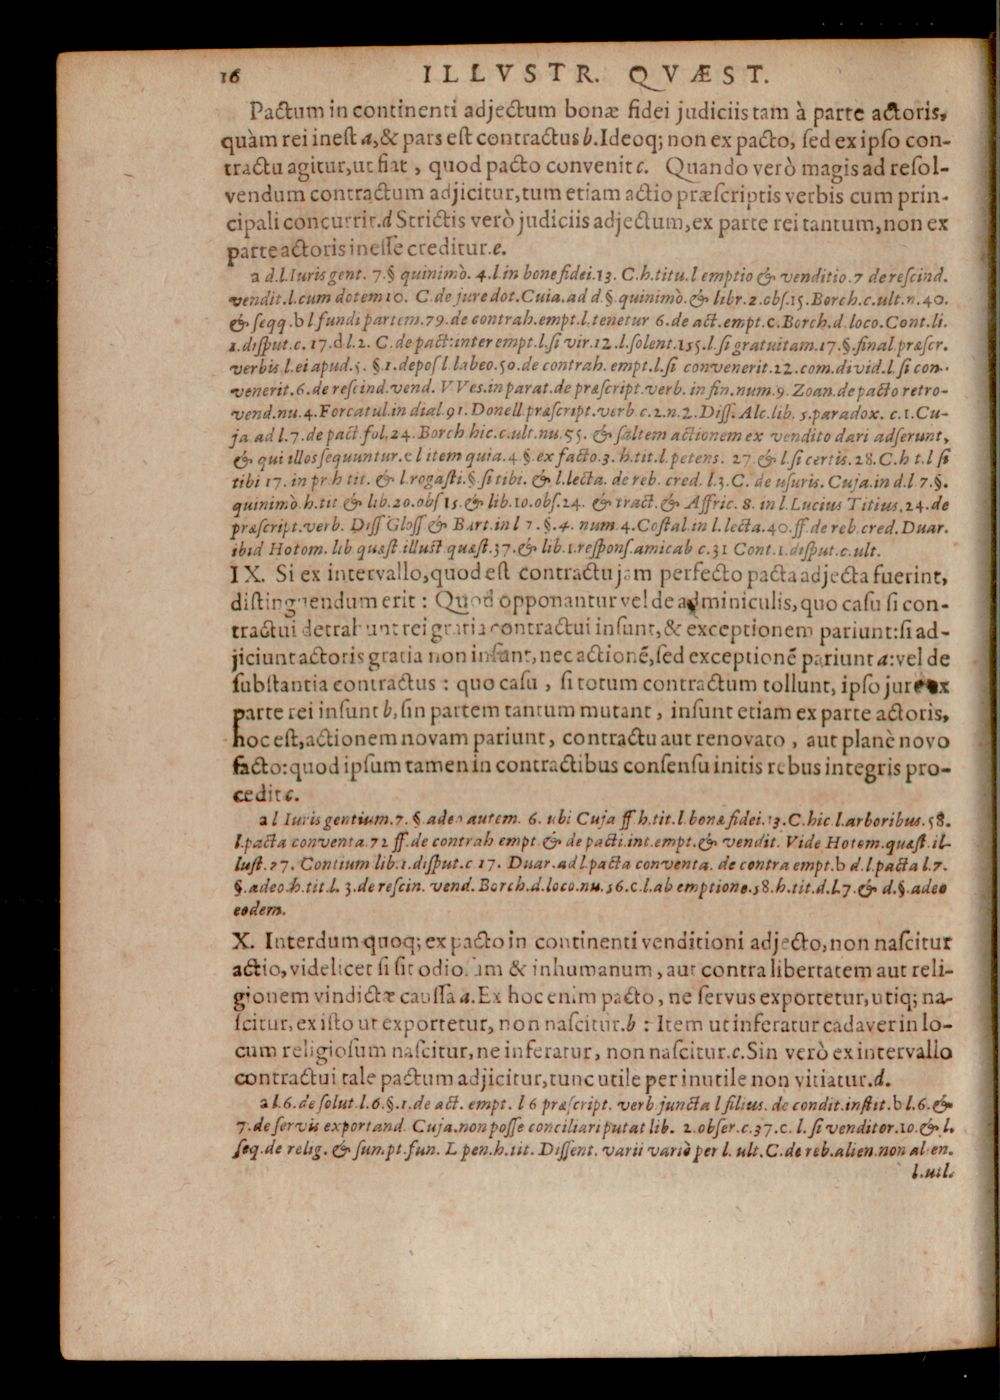 16 ILLVSTR. QVÆST.
Pactum in continenti adjectum bonæ fidei judiciis tam à parte actoris,
quàm rei inest a, & pars est contractus b. Ideoq; non ex pacto, sed ex ipso con-
tractu agitur, ut fiat, quod pacto convenit c. Quando verò magis ad resol-
vendum contractum adjicitur, tum etiam actio præscriptis verbis cum prin-
cipali concurrit. d Strictis verò judiciis adjectum, ex parte rei tantum, non ex
parte actoris inesse creditur. e.
a d.l. Iuris gent. 7. § quinimò. 4. l. in bone fidei. 13. C. h. titu. l emptio & venditio. 7 de rescind.
vendit. l. cum dotem 10. C. de jure dot. Cuia. ad d. §. quinimò. & libr. 2. obs. 15. Borch. c. ult. n. 40.
& seqq. b l fundi partem. 79. de contrah. empt. l. tenetur 6. de act. empt. c. Borch. d. loco. Cont. li.
1. disput. c. 17. d l. 2. C. de pact: inter empt. l. si vir. 12. l. solent. 155. l. si gratuitam. 17. §. final. præscr.
verbis l. ei apud. 5. §. 1. depos l. labeo. 50. de contrah. empt. l. si convenerit. 22. com. divid. l. si con-
venerit. 6. de rescind. vend. VVes. in parat. de præscript. verb. in fin. num. 9. Zoan. de pacto retro-
vend. nu. 4. Forcatul. in dial. 91. Donell. præscript. verb c. 2. n. 2. Diss. Alc. lib. 5. paradox. c. 1. Cu-
ja. ad l. 7. de pact. fol. 24. Borch hic. c. ult. nu. 55. & saltem actionem ex vendito dari adserunt,
& qui illos sequuntur. e l item quia. 4. §. ex facto. 3. h. tit. l. petens. 27 & l. si certis. 28. C. h t. l si
tibi 17. in pr h tit. & l. rogasti. §. si tibi. & l. lecta. de reb. cred. l. 3. C. de usuris. Cuja. in d. l 7. §.
quinimò. h. tit & lib. 20. obs 15. & lib. 10. obs. 24. & tract. & Affric. 8. in l. Lucius Titius, 24. de
præscript. verb. Diss Gloss & Bart. in l 7. §. 4. num. 4. Costal. in l. lecta. 40. ff. de reb. cred. Duar.
ibid Hotom. lib quæst. illust quæst. 37. & lib. 1. respons. amicab c. 31 Cont. 1. disput. c. ult.
IX. Si ex intervallo, quod est contractu jam perfecto pacta adjecta fuerint,
distinguendum erit: Quod opponantur vel de adminiculis, quo casu si con-
tractui detrahunt rei gratia contractui insunt, & exceptionem pariunt: si ad-
jiciunt actoris gratia non insunt, nec actionē, sed exceptionē pariunt a: vel de
substantia contractus: quo casu, si totum contractum tollunt, ipso jure ex
parte rei insunt b, sin partem tantum mutant, insunt etiam ex parte actoris,
hoc est, actionem novam pariunt, contractu aut renovato, aut planè novo
facto: quod ipsum tamen in contractibus consensu initis rebus integris pro-
cedit c.
a l Iuris gentium. 7. §. adeo autem. 6. ubi Cuja ff h. tit. l bonæ fidei. 13. C. hic l. arboribus. 58.
l. pacta conventa. 72 ff. de contrah empt & de pacti. int. empt. & vendit. Vide Hotom. quæst. il-
lust. 27. Contium lib. 1. disput. c 17. Duar. ad l. pacta conventa. de contra empt. b d. l. pacta l. 7.
§. adeo. h. tit. l. 3. de rescin. vend. Borch. d. loco. nu. 56. c. l. ab emptione. 58. h. tit. d. l. 7. & d. §. adeo
eodem.
X. Interdum quoq; ex pacto in continenti venditioni adjecto, non nascitur
actio, videlicet si sit & inhumanum, aut contra libertatem aut reli-
gionem vindictæ caussa a. Ex hoc enim pacto, ne servus exportetur, utiq; na-
scitur, ex isto ut exportetur, non nascitur. b : Item ut inferatur cadaver in lo-
cum religiosum nascitur, ne inferatur, non nascitur. c. Sin verò ex intervallo
contractui tale pactum adjicitur, tunc utile per inutile non vitiatur. d.
a l. 6. de solut. l. 6. §. 1. de act. empt. l 6 præscript. verb juncta l filius. de condit. instit. b l. 6. &
7. de servis exportand. Cuja. non posse conciliari putat lib. 2. obser. c. 37. c. l. si venditor. 10. & l.
seq. de relig. & sum pt. fun. L pen. h. tit. Dissent. varii variè per l. ult. C. de reb. alien. non al en.
l. util.